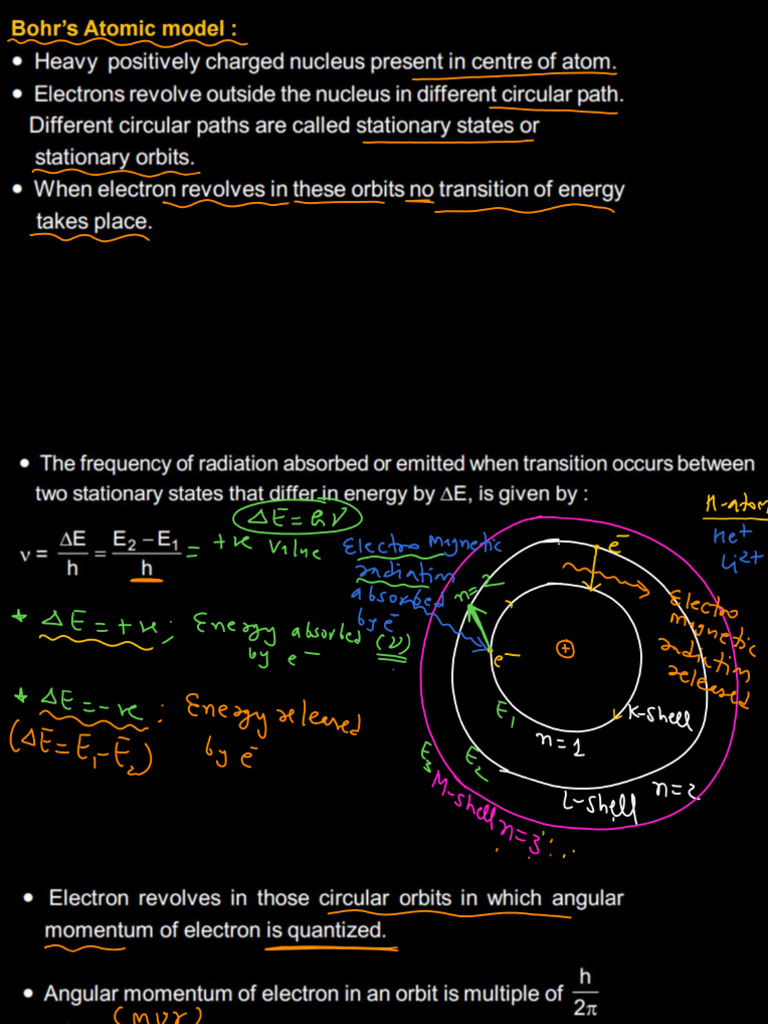 Bohr's Atomic model :
• Heavy positively charged nucleus present in centre of atom.
• Electrons revolve outside the nucleus in different circular path.
Different circular paths are called stationary states or
stationary orbits.
• When electron revolves in these orbits no transition of energy
takes place.
• The frequency of radiation absorbed or emitted when transition occurs between
two stationary states that differ in energy by ΔE, is given by :
ΔE = hν
ν = ΔE/h = (E₂ − E₁)/h = +ve value
Electro Magnetic
radiation
absorbed
by e⁻
n=2
e⁻
H-atom
He⁺
Li²⁺
Electro
magnetic
radiation
released
* ΔE = +ve ; Energy absorbed (ν)
by e⁻
e⁻
+
* ΔE = -ve : Energy released
(ΔE = E₁ - E₂) by e⁻
E₁
n=1
K-shell
E₂
E₃
L-shell
n=2
M-shell n=3
• Electron revolves in those circular orbits in which angular
momentum of electron is quantized.
• Angular momentum of electron in an orbit is multiple of h/2π
(mνr)